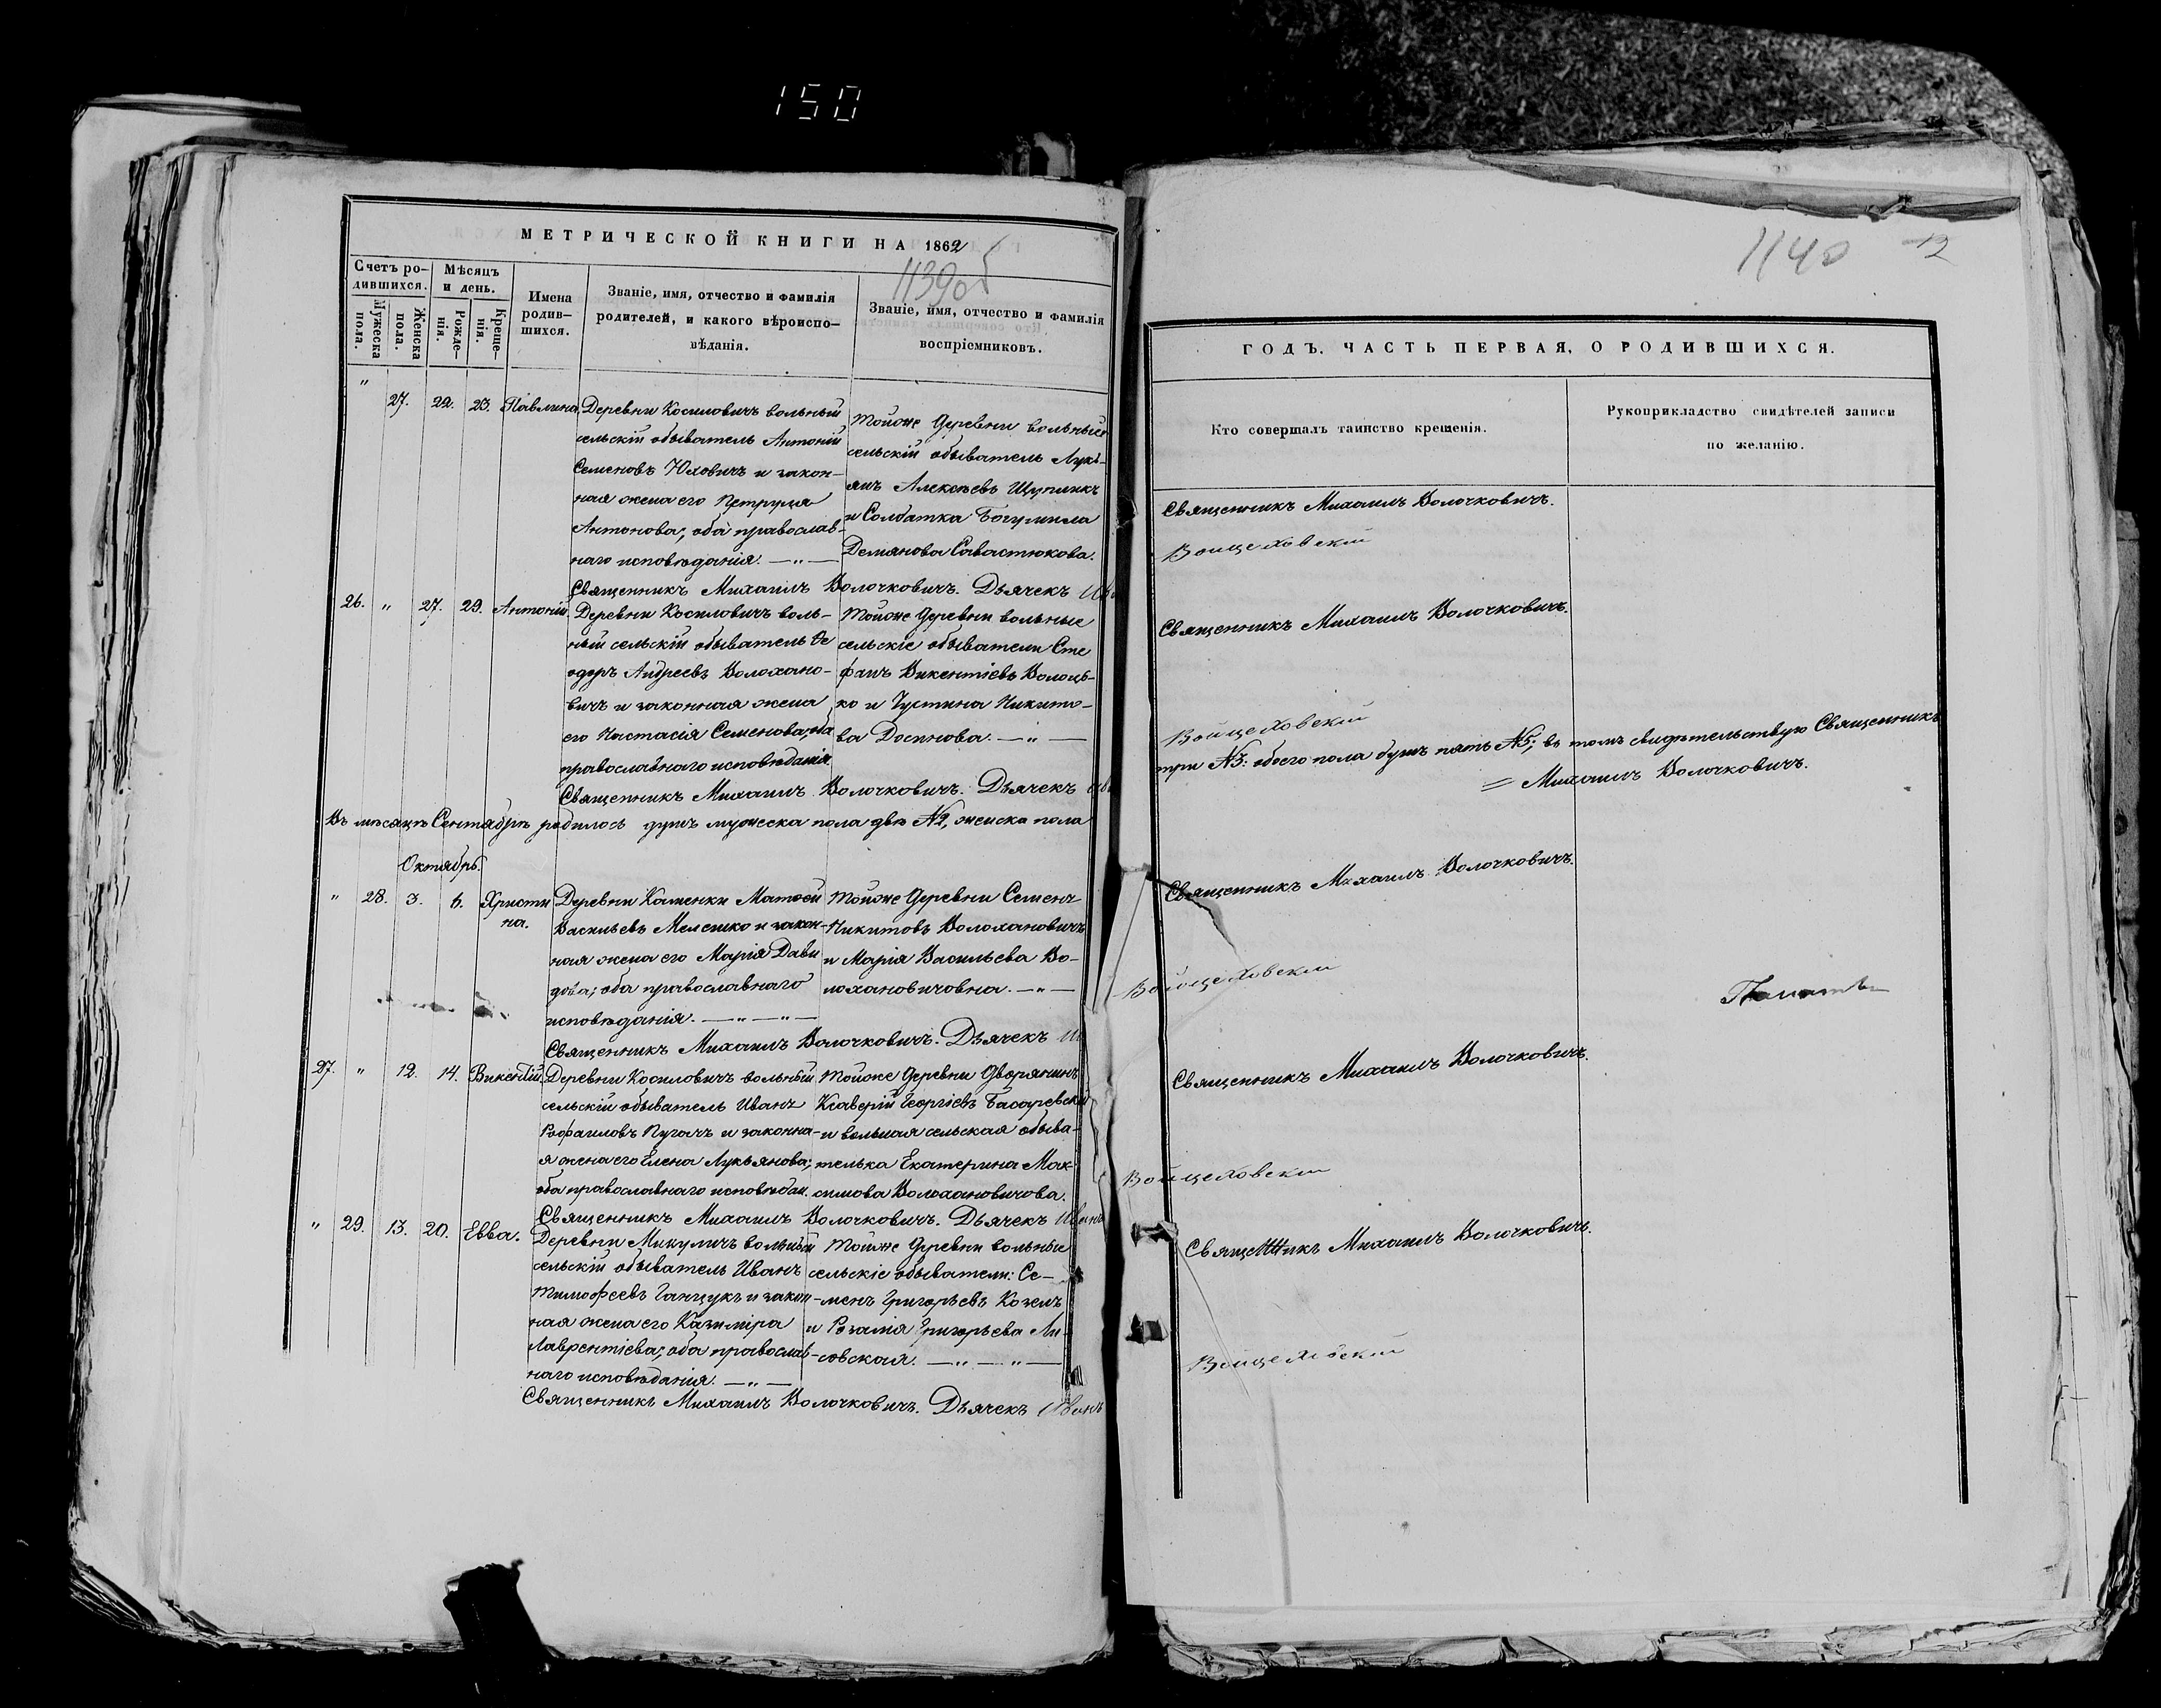 150
МЕТРИЧЕСКОЙ КНИГИ НА 1862
1139об
Счетъ ро-
дившихся.
Мѣсяцъ
и день.
Мужеска
пола.
Женска
пола.
Рожде-
нія.
Креще-
нія.
Имена
родив-
шихся.
Званіе, имя, отчество и фамилія
родителей, и какого вѣроиспо-
вѣданія.
Званіе, имя, отчество и фамилія
воспріемниковъ.
" 27. 22. 23. Павлина.
Деревни Косиловичъ вольный
сельскій обыватель Антоній
Семеновъ Юховичъ и закон-
ная жена его Петруся
Антонова; оба православ-
наго исповѣданія. — " —
Тойже деревни вольный
сельскій обыватель Лукі-
янъ Алексѣевъ Щупликъ
и Солдатка Богумила
Демянова Савастюкова.
Священникъ Михаилъ Волочковичъ. Дьячекъ Ив
26. " 27. 29. Антоній.
Деревни Косиловичъ воль-
ный сельскій обыватель Ѳе
одоръ Андреевъ Волохано-
вичъ и законная жена
его Настасія Семенова; оба
православнаго исповѣданія
Тойже деревни вольные
сельскіе обыватели Сте
фанъ Викентіевъ Волоць-
ко и Іустина Никито-
ва Досинова. — " —
Священникъ Михаилъ Волочковичъ. Дьячекъ Ив
Въ мѣсяцѣ Сентябрѣ родилось душъ мужеска пола двѣ №2, женска пола
Октябрь.
" 28. 3. 6. Христи
на.
Деревни Каменки Матѳей
Васильевъ Мелешко и закон-
ная жена его Марія Дави
дова; оба православнаго
исповѣданія. — " — " —
Тойже деревни Семенъ
Никитовъ Волохановичъ
и Марія Васильева Во-
лохановичовна. — " —
Священникъ Михаилъ Волочковичъ. Дьячекъ Ив
27. " 12. 14. Викентій.
Деревни Косиловичъ вольный
сельскій обыватель Иванъ
Рафаиловъ Пугачъ и законна-
я жена его Елена Лукьянова;
оба православнаго исповѣдан.
Тойже деревни дворянинъ
Ксаверій Георгіевъ Басаревскій
и вольная сельская обыва-
телька Екатерина Мак-
симова Волохановичова.
Священникъ Михаилъ Волочковичъ. Дьячекъ Иванъ
" 29. 13. 20. Евва.
Деревни Микуличъ вольный
сельскій обыватель Иванъ
Тимофеевъ Ганцукъ и закон
ная жена его Казиміра
Лаврентіева; оба православ-
наго исповѣданія. — " —
Тойже деревни вольные
сельскіе обыватели: Се-
менъ Григорьевъ Козелъ
и Розалія Григорьева Ли-
совская. — " — " —
Священникъ Михаилъ Волочковичъ. Дьячекъ Иванъ
1140 12
ГОДЪ. ЧАСТЬ ПЕРВАЯ, О РОДИВШИХСЯ.
Кто совершалъ таинство крещенія.
Рукоприкладство свидѣтелей записи
по желанію.
Священникъ Михаилъ Волочковичъ.
Войцеховскій
Священникъ Михаилъ Волочковичъ.
Войцеховскій
три №3: обоего пола душъ пять №5; въ томъ свидѣтельствую Священникъ
= Михаилъ Волочковичъ.
Священникъ Михаилъ Волочковичъ.
Войцеховскій
Священникъ Михаилъ Волочковичъ.
Войцеховскій
Священникъ Михаилъ Волочковичъ.
Войцеховскій